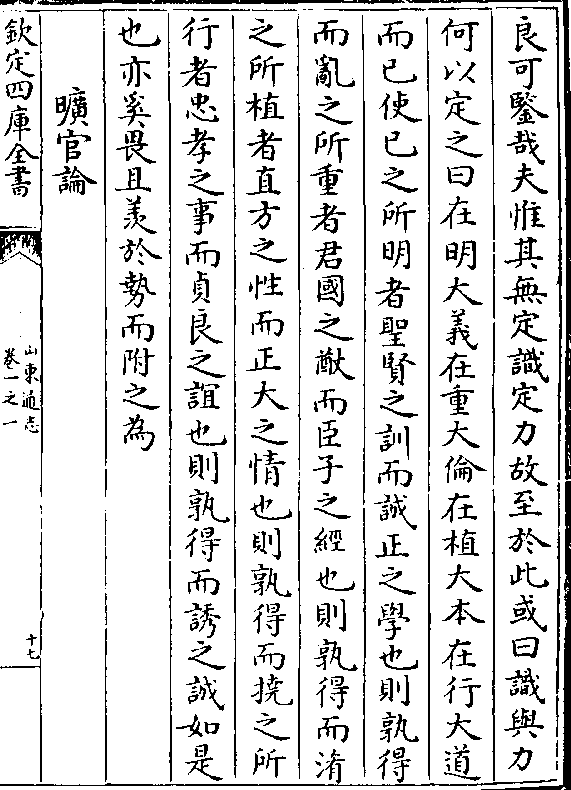 良可鑒哉夫惟其無定識定力故至於此或曰識與力
何以定之曰在明大義在重大倫在植大本在行大道
而已使已之所明者聖賢之訓而誠正之學也則孰得
而亂之所重者君國之猷而臣子之經也則孰得而淆
之所植者直方之性而正大之情也則孰得而撓之所
行者忠孝之事而貞良之誼也則孰得而誘之誠如是
也亦奚畏且羨於勢而附之為
曠官論
欽定四庫全書
山東通志
卷一之一
十七